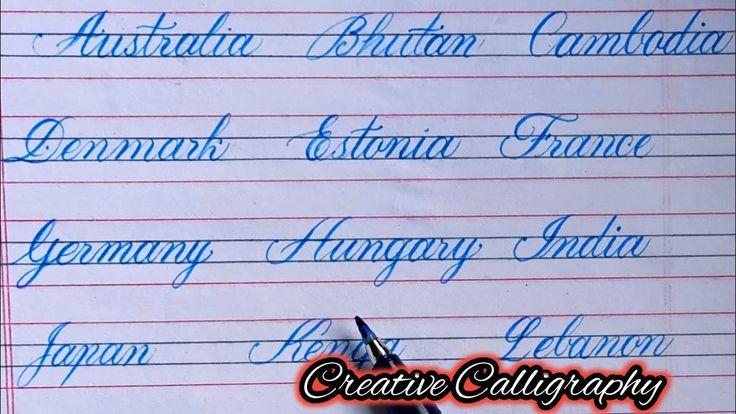 Australia Bhutan Cambodia
Denmark Estonia France
Germany Hungary India
Japan Kenya Lebanon
Creative Calligraphy